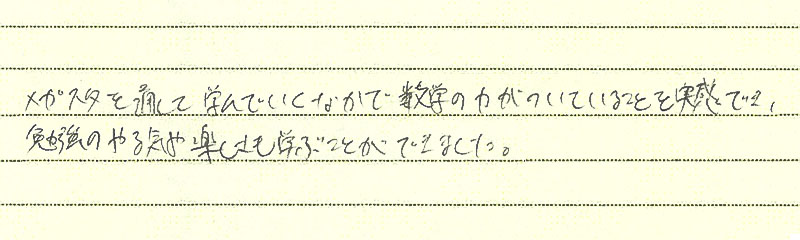 メガスタを通して学んでいくなかで数学の力がついていることを実感でき、
勉強のやる気や楽しさも学ぶことができました。